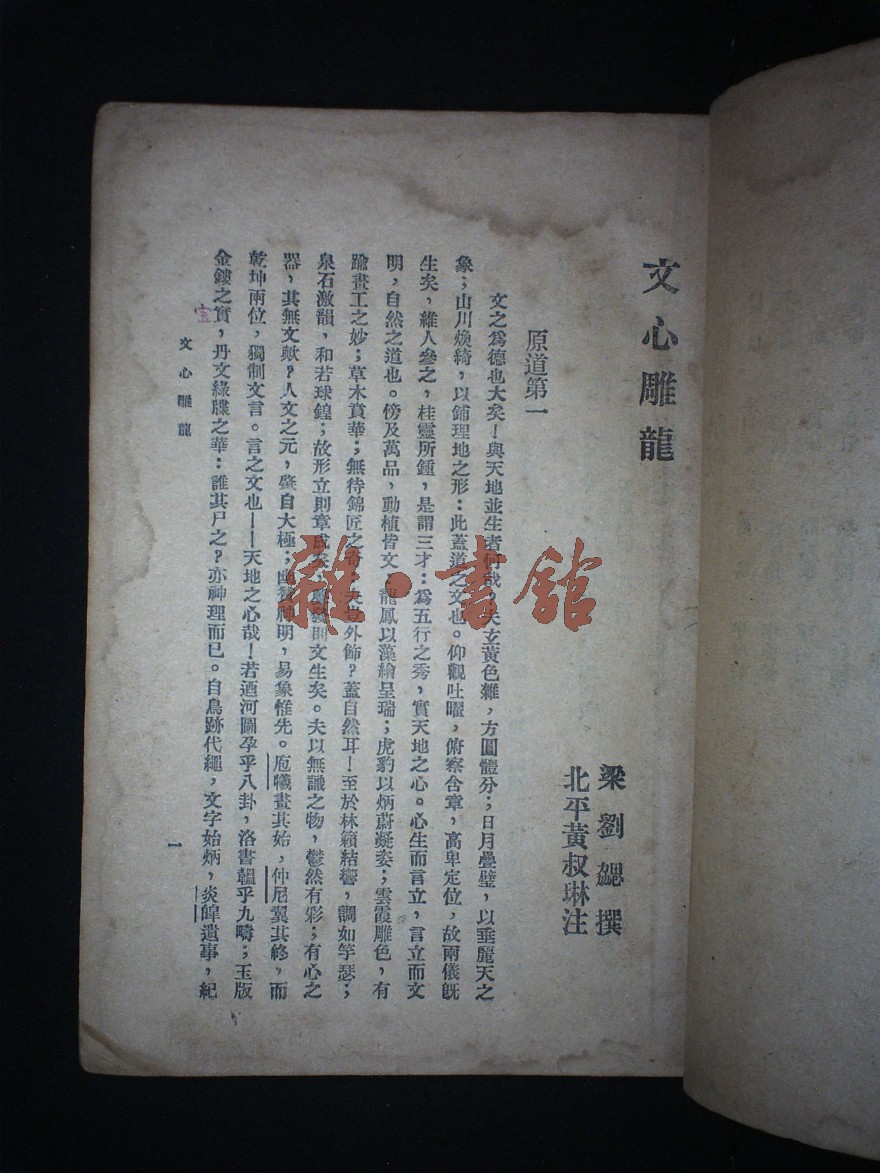 文心雕龍
梁劉勰撰
北平黃叔琳注
原道第一
文之爲德也大矣！與天地並生者何哉？夫玄黃色雜，方圓體分；日月疊璧，以垂麗天之
象；山川煥綺，以鋪理地之形：此蓋道之文也。仰觀吐曜，俯察含章，高卑定位，故兩儀旣
生矣，維人參之，桂靈所鍾，是謂三才：爲五行之秀，實天地之心。心生而言立，言立而文
明，自然之道也。傍及萬品，動植皆文：龍鳳以藻繪呈瑞；虎豹以炳蔚凝姿；雲霞雕色，有
踰畫工之妙；草木賁華；無待錦匠之奇：夫豈外飾？蓋自然耳！至於林籟結響，調如竽瑟；
泉石激韻，和若球鍠；故形立則章成矣，聲發則文生矣。夫以無識之物，鬱然有彩；有心之
器，其無文歟？人文之元，肇自大極；幽贊神明，易象惟先。庖犧畫其始，仲尼翼其終，而
乾坤兩位，獨制文言。言之文也——天地之心哉！若迺河圖孕乎八卦，洛書韞乎九疇；玉版
金鏤之實，丹文綠牒之華：誰其尸之？亦神理而已。自鳥跡代繩，文字始炳，炎皥遺事，紀
宝
文心雕龍
一
雜·書館